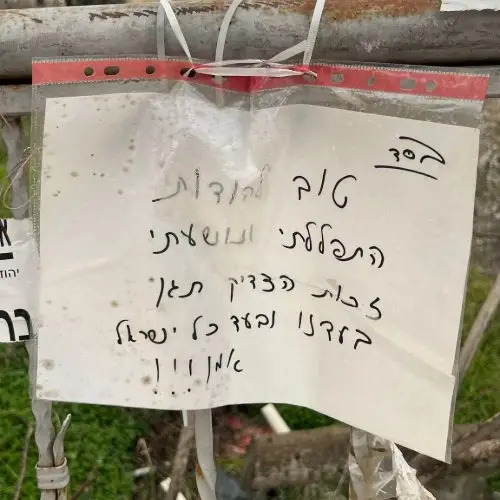 בסד
טוב להודות
התפללתי ונושעתי
זכות הצדיק תגן
בעדנו ובעד כל ישראל
אמן !!!
יהוד